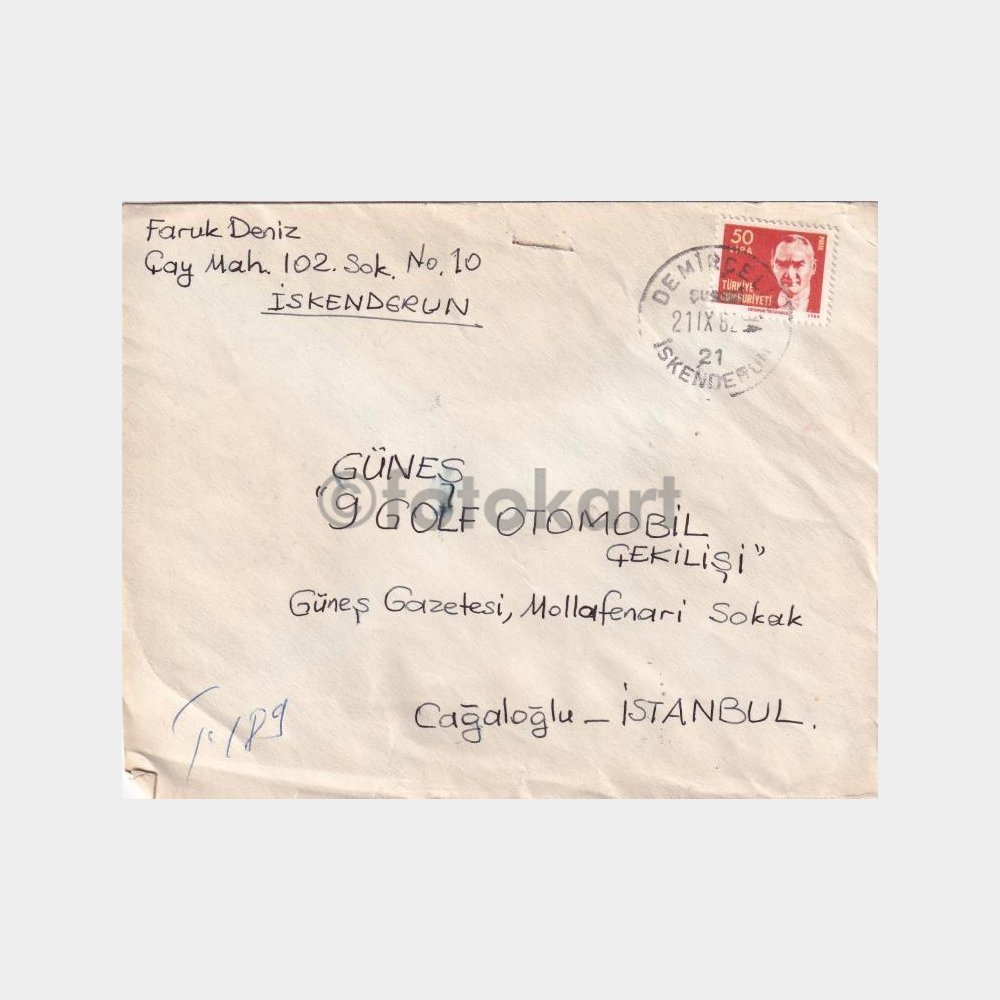 Faruk Deniz
Çay Mah. 102. Sok. No. 10
İSKENDERUN
50
LİRA
TÜRKİYE
CUMHURİYETİ
DEMİRÇEL
21 IX 82
21
İSKENDERUN
GÜNEŞ
©fotokart
"9 GOLF OTOMOBİL
ÇEKİLİŞİ"
Güneş Gazetesi, Mollafenari Sokak
Cağaloğlu - İSTANBUL.